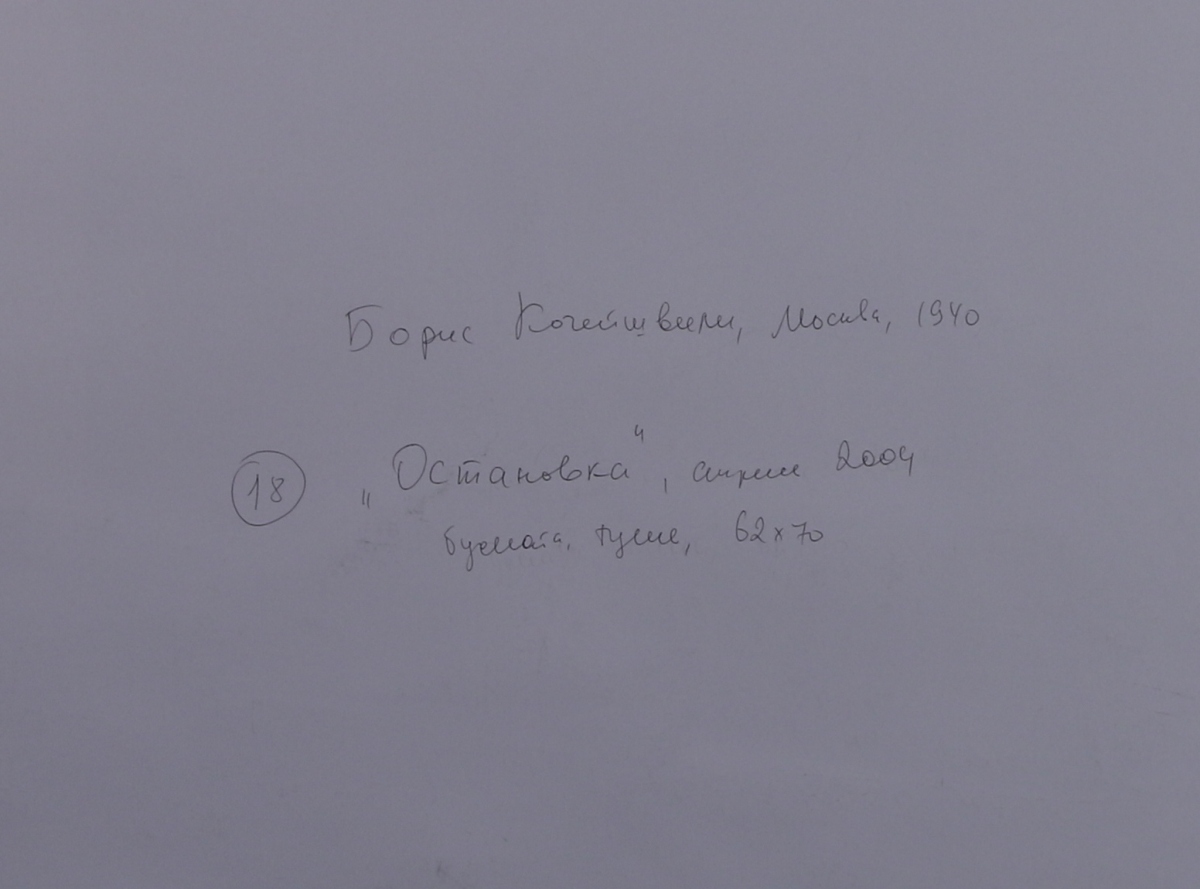 Борис Кочейшвили, Москва, 1940
18 „Остановка“, апрель 2004
бумага, тушь, 62x70